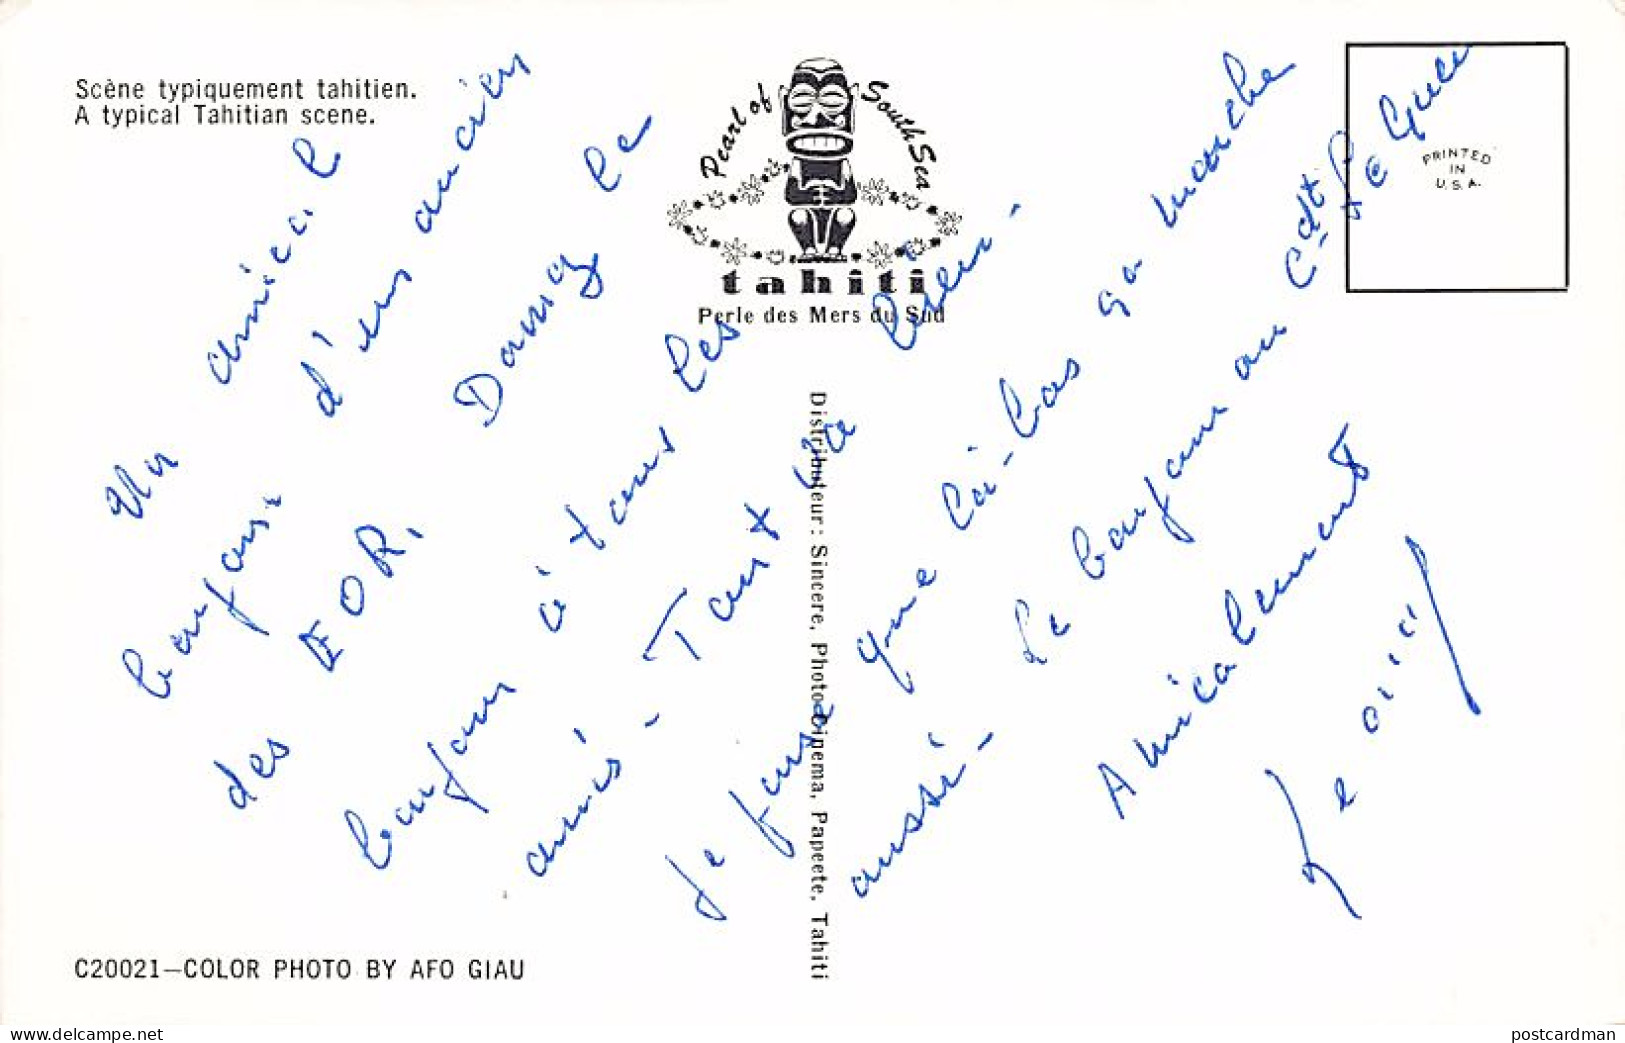 Scène typiquement tahitien.
A typical Tahitian scene.
Pearl of South Sea
tahiti
Perle des Mers du Sud
PRINTED
IN
U.S.A.
Un amical
bonjour d'un ancien
des EOR. Donnez le
bonjour à tous les
amis - Tout va bien -
Je pense que là-bas ça marche
aussi -
Le bonjour au Cdt Le
Amicalement
Distributeur: Sincere, Photo-Cinema, Papeete, Tahiti
C20021—COLOR PHOTO BY AFO GIAU
www.delcampe.net
postcardman